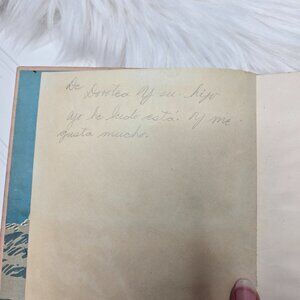 De Dorotea y su hijo
yo he leido está. Y me
gusta mucho.